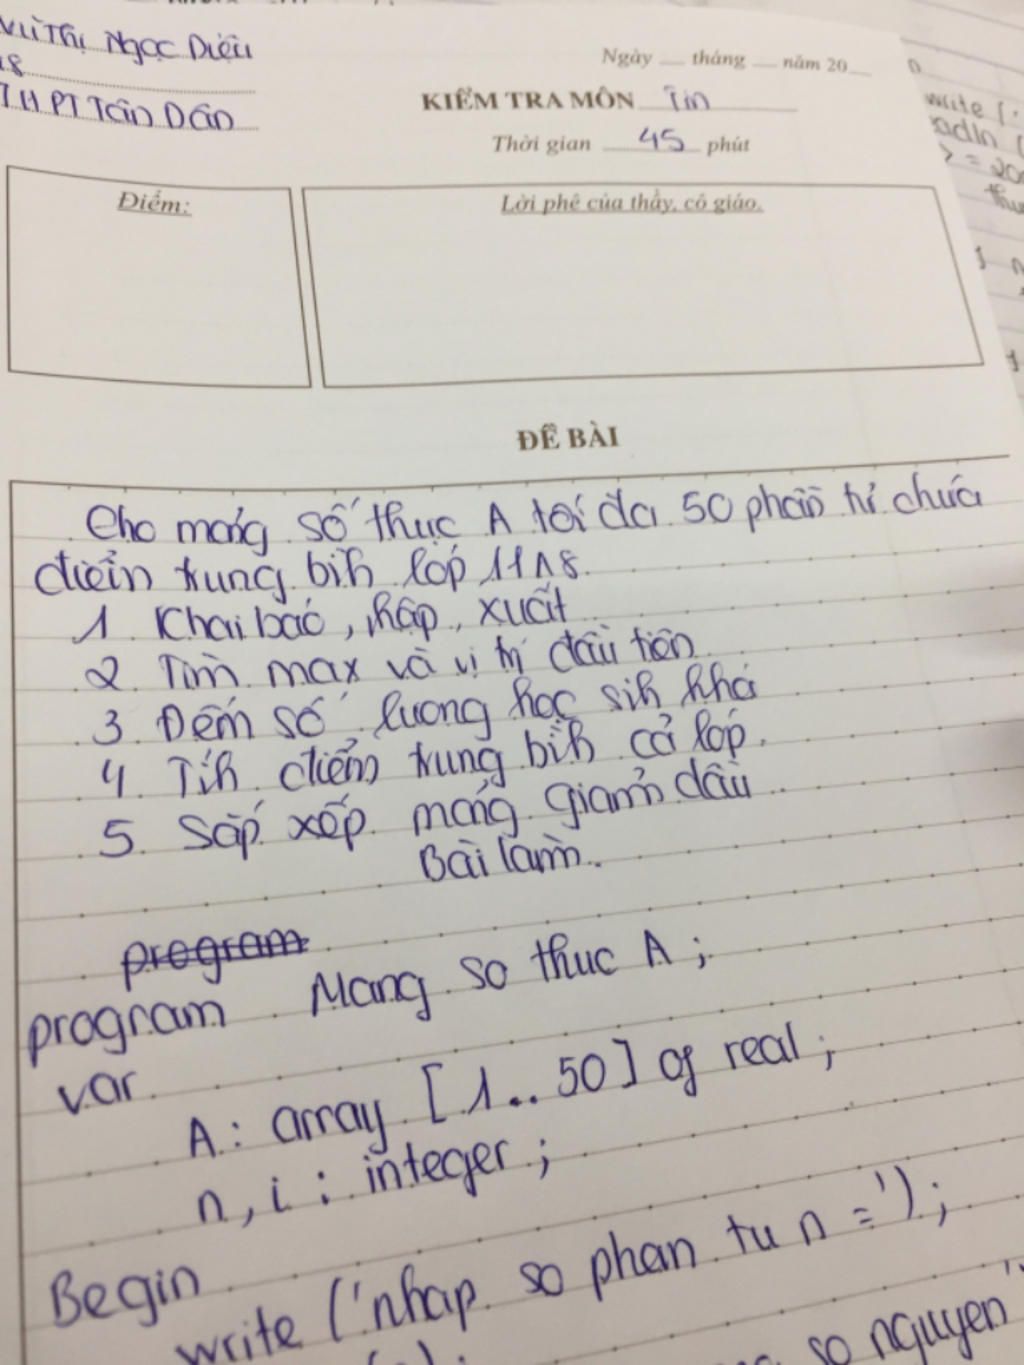 Vũ Thị Ngọc Diệu
Ngày tháng năm 20
KIỂM TRA MÔN Tin
THPT Tân Dân
Thời gian 45 phút
write (
Điểm:
Lời phê của thầy, cô giáo.
ĐỀ BÀI
Cho mảng số thực A tối đa 50 phần tử chứa
điểm trung bìh lớp 11A8.
1. Khai báo, nhập, xuất
2. Tìm max và vị trí đầu tiên
3. Đếm số lượng học sih khá
4. Tíh điểm trung bìh cả lớp.
5. Sắp xếp mảng giảm dần
Bài làm.
program
program Mang so thuc A;
var
A: array [1..50] of real;
n, i : integer;
Begin
write ('nhap so phan tu n =');
so nguyen